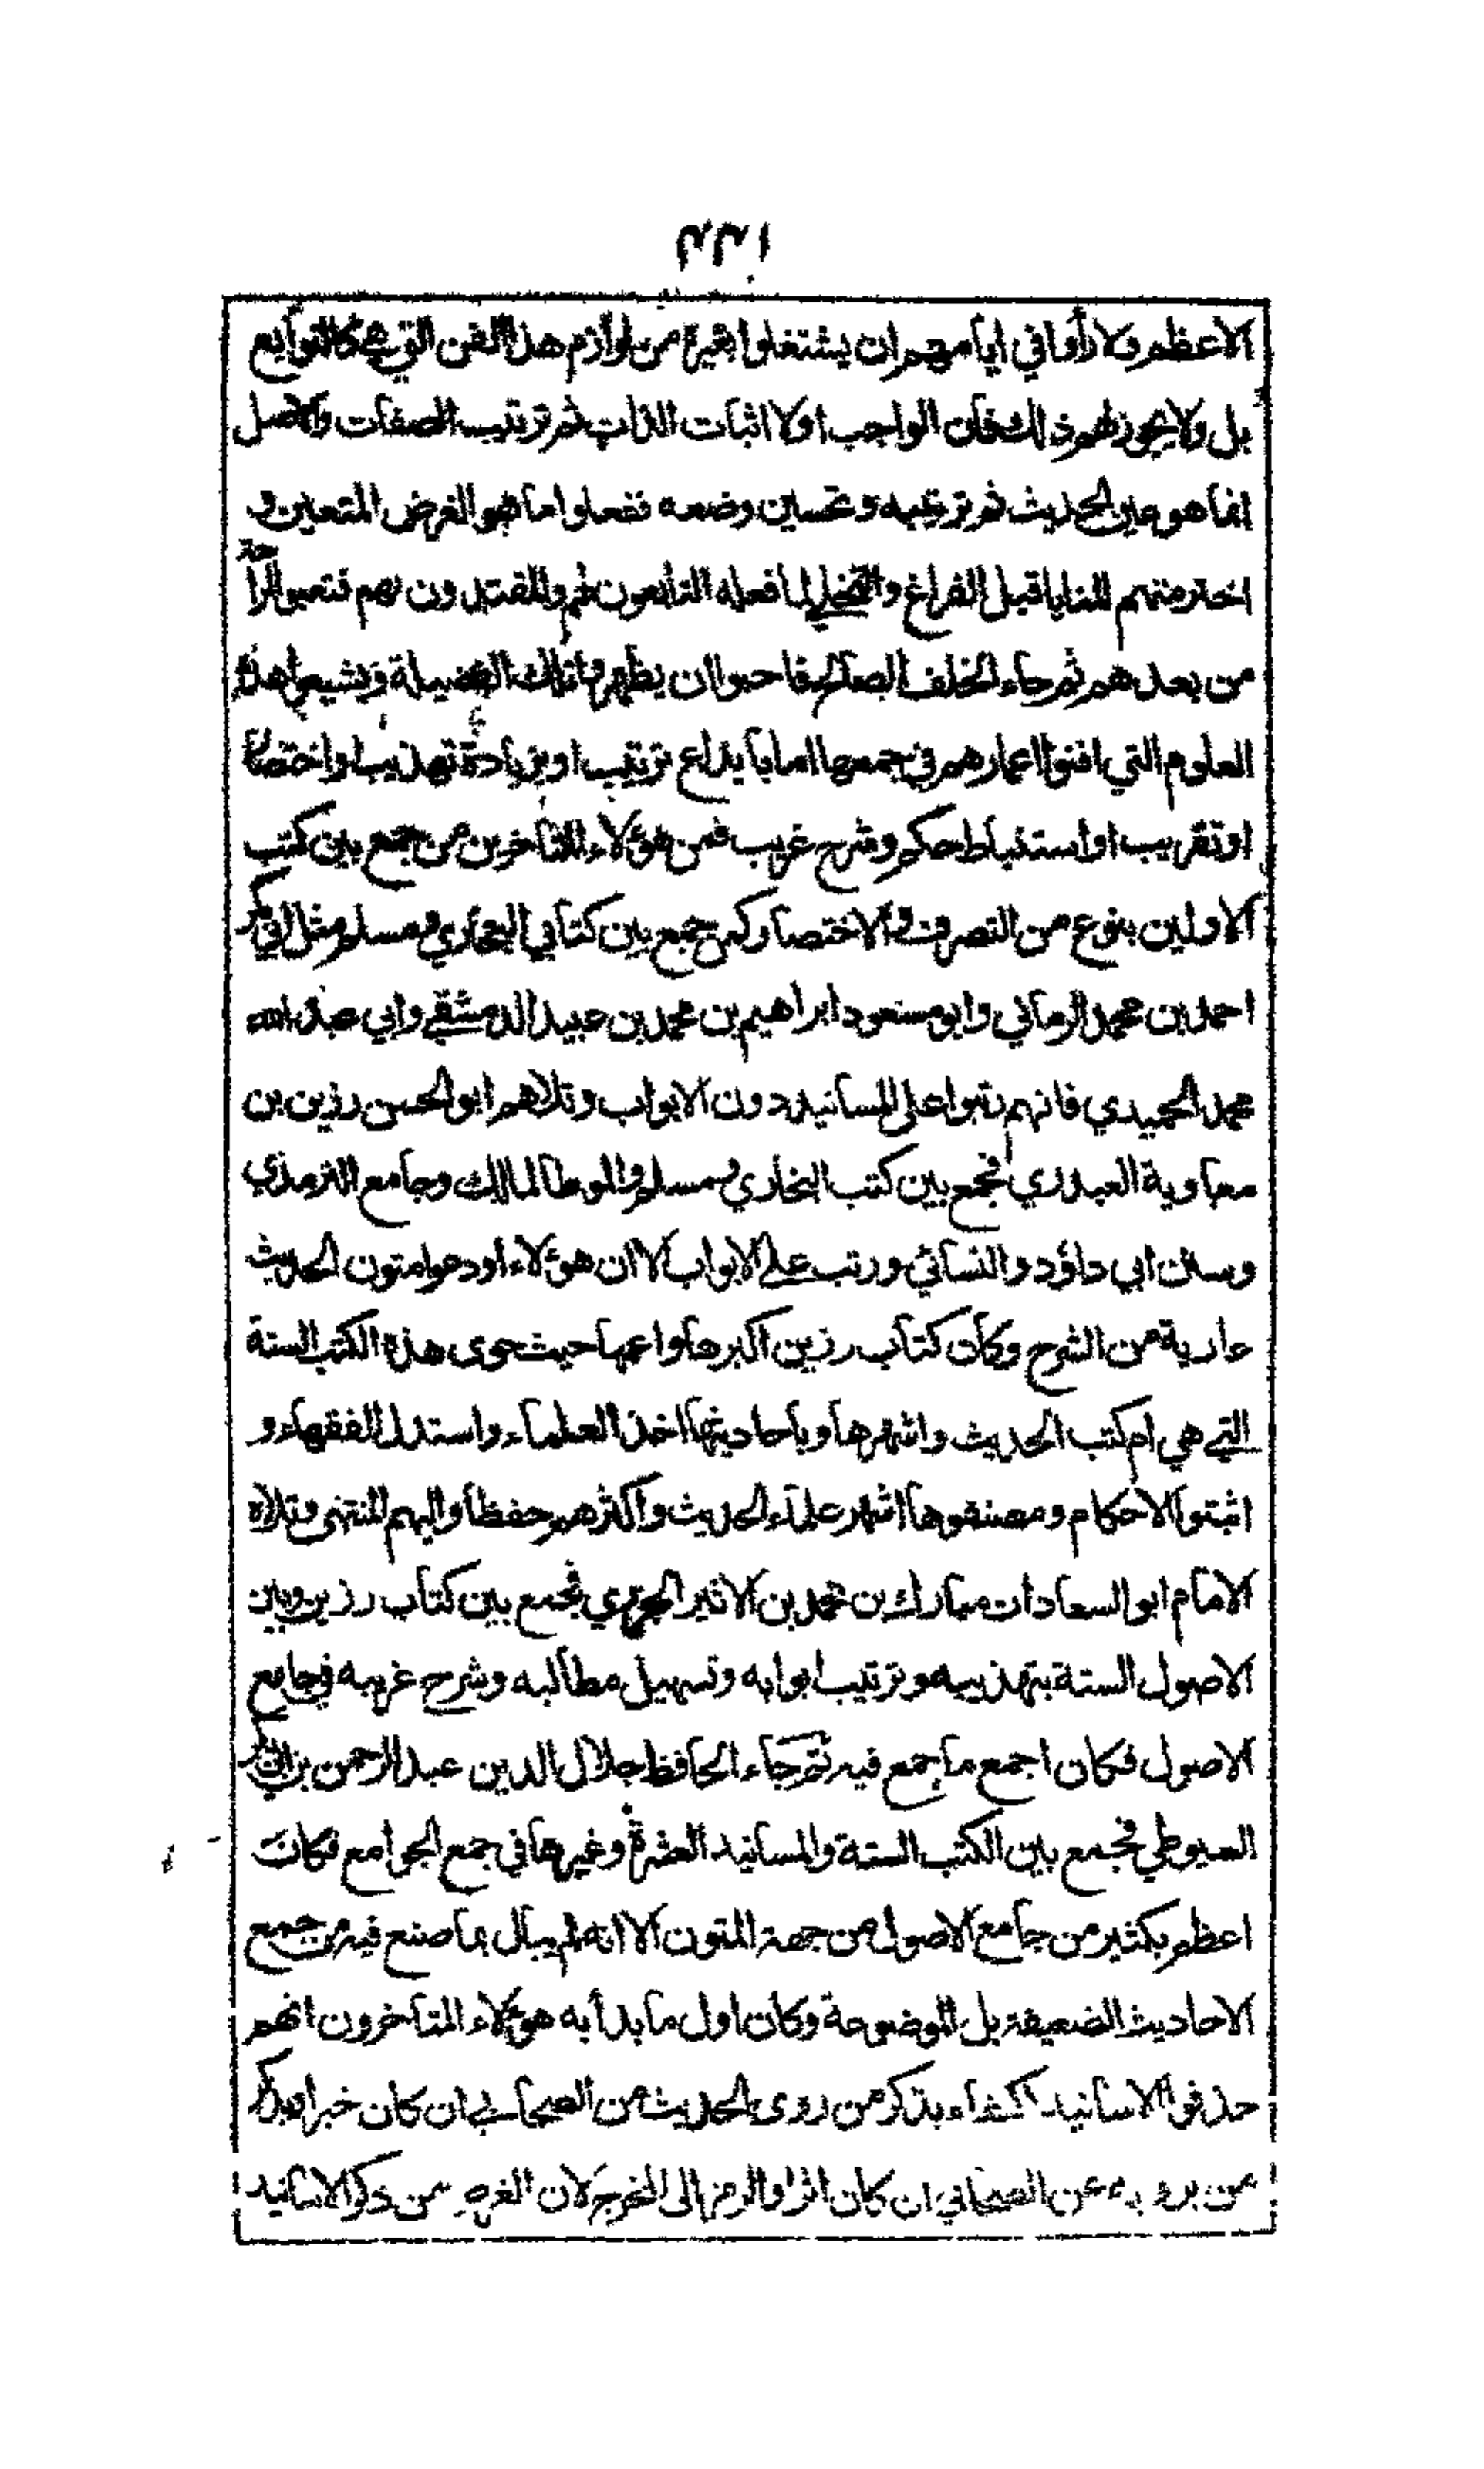 الاعظم ولا رأوا في ايامهم ان يشتغلوا بغيره من لوازم هذا الفن التي هي كالتوابع
بل ولا يجوز لهم ذلك فان الواجب اولا اثبات الذات ثم ترتيب الصفات والاصل
انما هو عين الحديث ثم ترتيبه وتحسين وضعه ففعلوا ما هو الغرض المتعين و
اخترمتهم المنايا قبل الفراغ والتخلي لما فعله التابعون لهم والمقتدون بهم فتعبوا راحة
من بعدهم ثم جاء الخلف الصالح فاحبوا ان يظهروا تلك الفضيلة ويشيعوا هذه
العلوم التي افنوا اعمارهم في جمعها اما بابداع ترتيب او بزيادة تهذيب او اختصار
او تقريب او استنباط حكم وشرح غريب فمن هؤلاء المتأخرين من جمع بين كتب
الاولين بنوع من التصرف والاختصار كمن جمع بين كتابي البخاري ومسلم مثل ابي بكر
احمد بن محمد الرماني وابو مسعود ابراهيم بن محمد بن عبيد الدمشقي وابي عبد الله
محمد الحميدي فانهم رتبوا على المسانيد دون الابواب وتلاهم ابو الحسن رزين بن
معاوية العبدري فجمع بين كتب البخاري ومسلم والموطا لمالك وجامع الترمذي
وسنن ابي داؤد والنسائي ورتب على الابواب الا ان هؤلاء أودعوا متون الحديث
عارية من الشرح وكان كتاب رزين اكبرها واعمها حيث حوى هذه الكتب الستة
التي هي ام كتب الحديث واشهرها وباحاديثها اخذ العلماء واستدل الفقهاء و
اثبتوا الاحكام ومصنفوها اشهر علماء الحديث واكثرهم حفظا واليهم المنتهى وتلاه
الامام ابو السعادات مبارك بن محمد بن الاثير الجزري فجمع بين كتاب رزين وبين
الاصول الستة بتهذيبه وترتيب ابوابه وتسهيل مطالبه وشرح غريبه في جامع
الاصول فكان اجمع ما جمع فيه ثم جاء الحافظ جلال الدين عبد الرحمن بن ابي بكر
السيوطي فجمع بين الكتب الستة والمسانيد العشرة وغيرها في جمع الجوامع فكان
اعظم بكثير من جامع الاصول من جهة المتون الا انه لم يبال بما صنع فيه من جمع
الاحاديث الضعيفة بل الموضوعة وكان اول ما بدأ به هؤلاء المتأخرون انهم
حذفوا الاسانيد اكتفاء بذكر من روى الحديث من الصحابي ان كان خبرا وبذكر
من يرويه عن الصحابي ان كان اثرا والرمز الى المخرج لان الغرض من ذكر الاسانيد